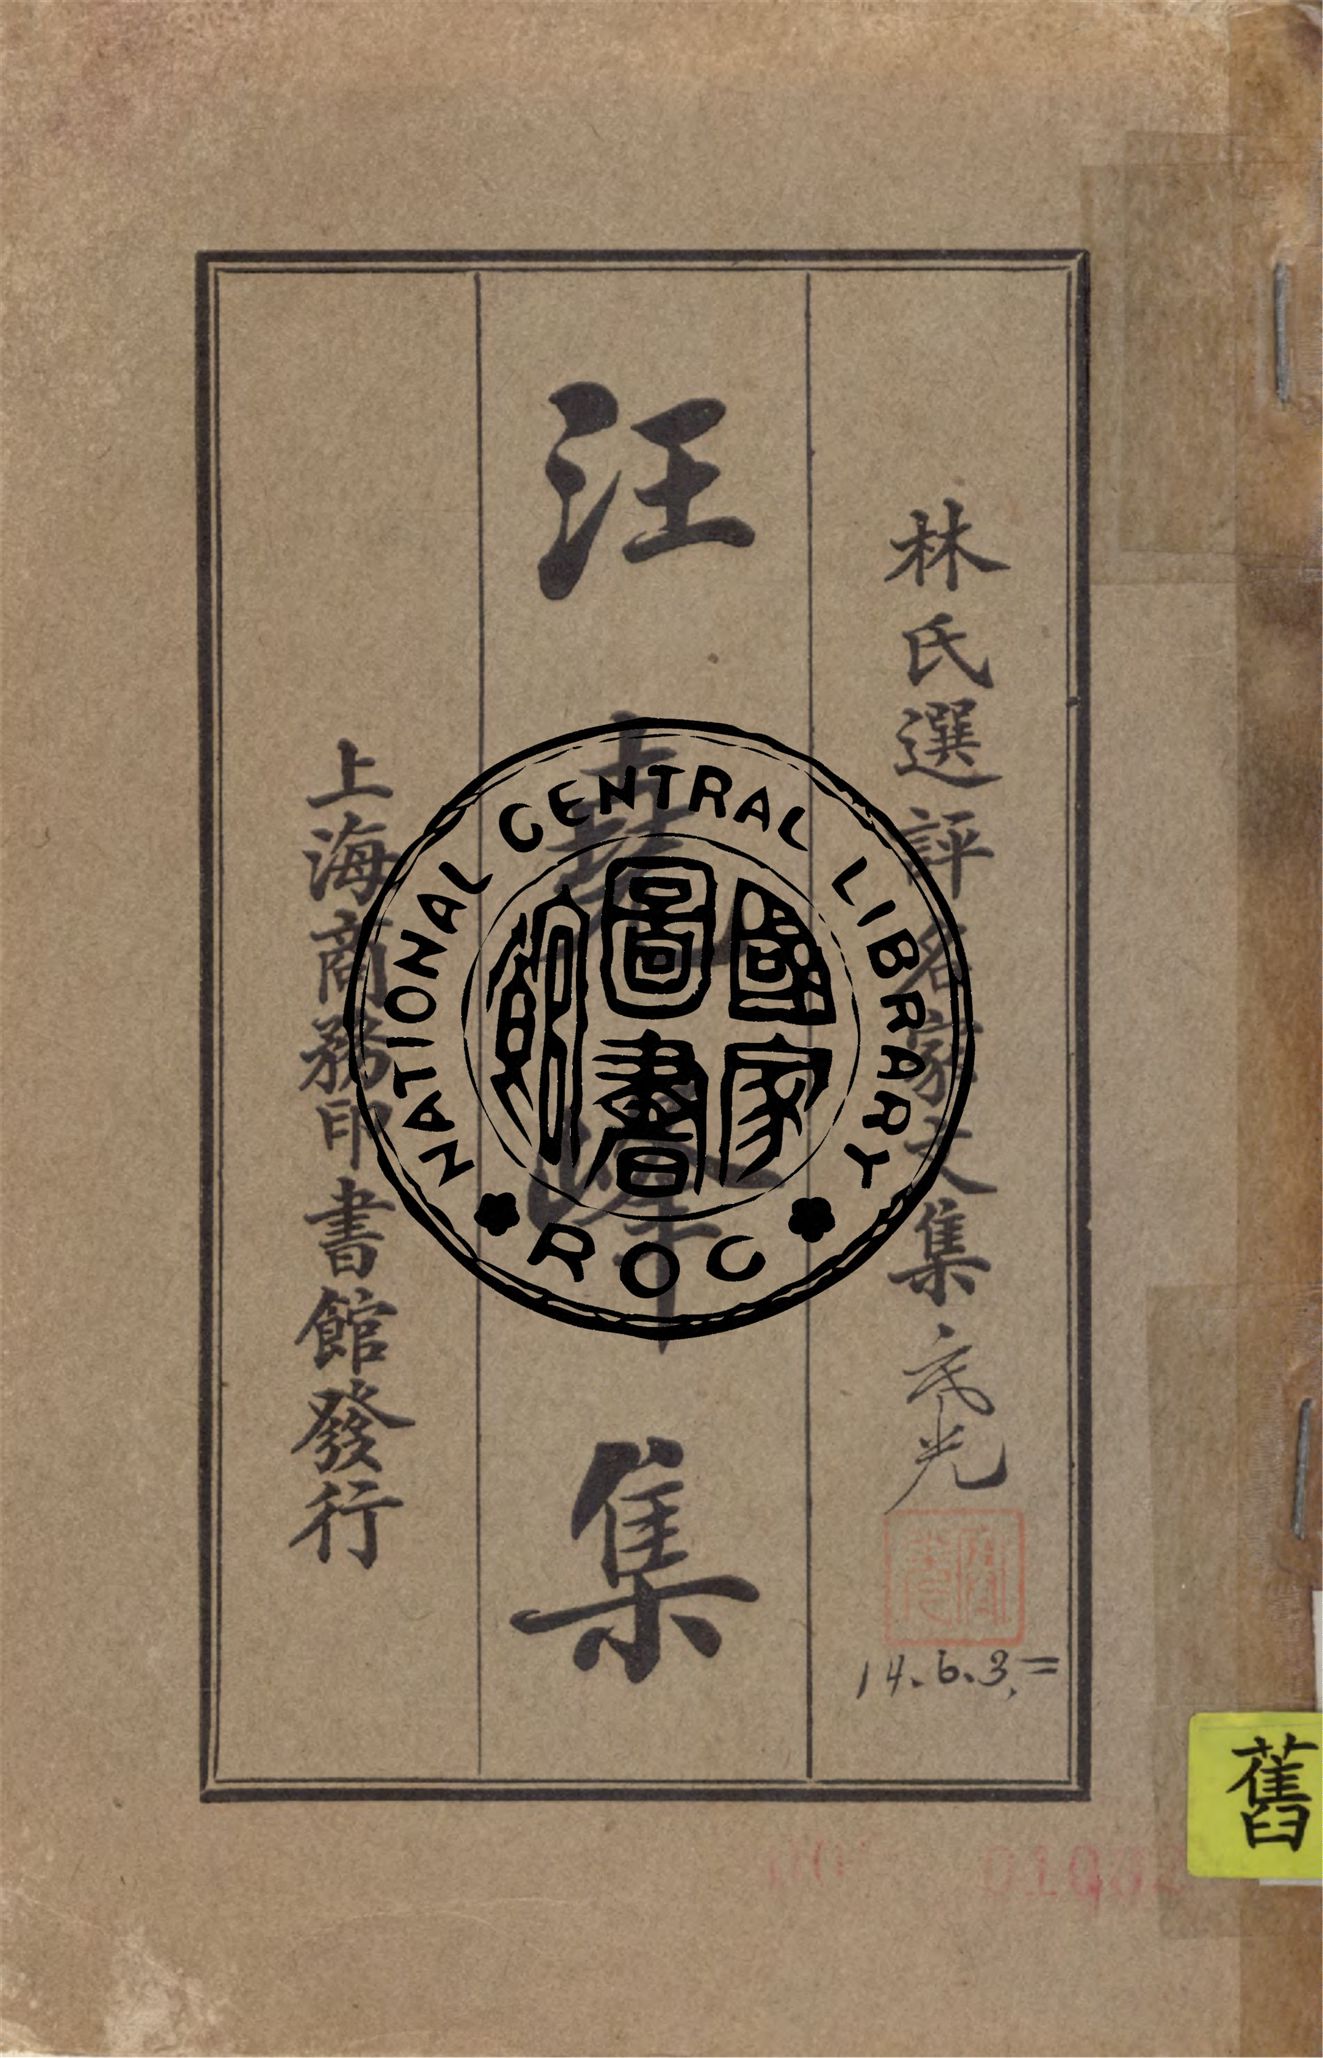 林氏選評名家文集
14.6.3.=
汪堯峰集
上海商務印書館發行
NATIONAL CENTRAL LIBRARY
國家圖書館
ROC
舊